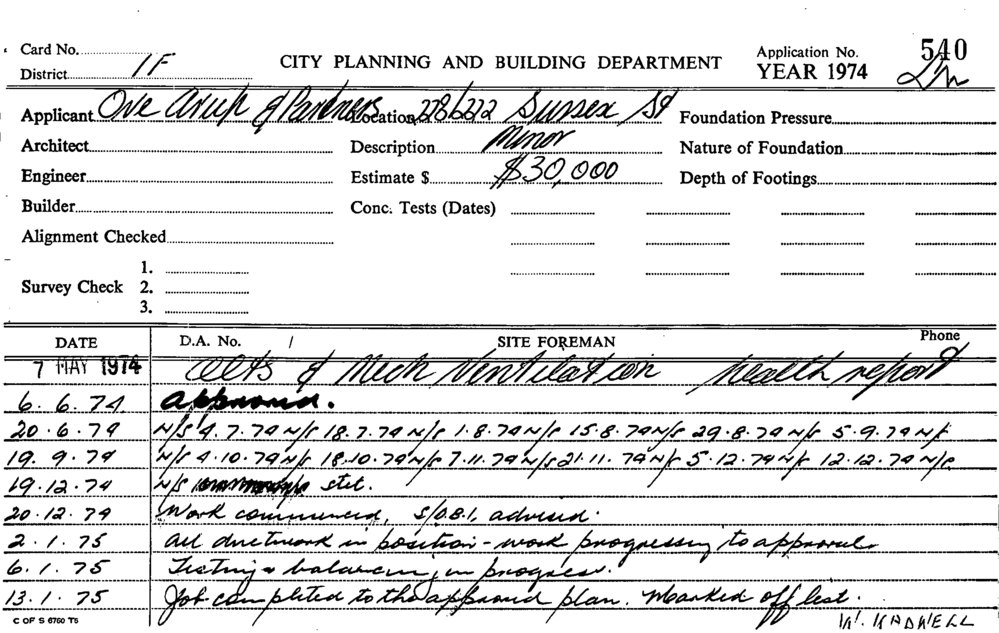 Card No. 1F Application No. 540
District CITY PLANNING AND BUILDING DEPARTMENT YEAR 1974
Applicant Ove Arup & Partners Location 228/222 Sussex St Foundation Pressure
Architect Description Minor Nature of Foundation
Engineer Estimate $ $30,000 Depth of Footings
Builder Conc. Tests (Dates)
Alignment Checked
1.
Survey Check 2.
3.
DATE D.A. No. / SITE FOREMAN Phone
7 MAY 1974 Alts & Mech Ventilation health report
6.6.74 approved.
20.6.74 N/S 4.7.74 N/S 18.7.74 N/S 1.8.74 N/S 15.8.74 N/S 29.8.74 N/S 5.9.74 N/S
19.9.74 N/S 4.10.74 N/S 18.10.74 N/S 7.11.74 N/S 21.11.74 N/S 5.12.74 N/S 12.12.74 N/S
19.12.74 N/S stet.
20.12.74 Work commenced, S/O.B.I. advised.
2.1.75 all ductwork in position - work progressing to approval
6.1.75 Testing & balancing in progress.
13.1.75 Job completed to the approved plan. Marked off list.
C OF S 6760 T5 W. KADWELL